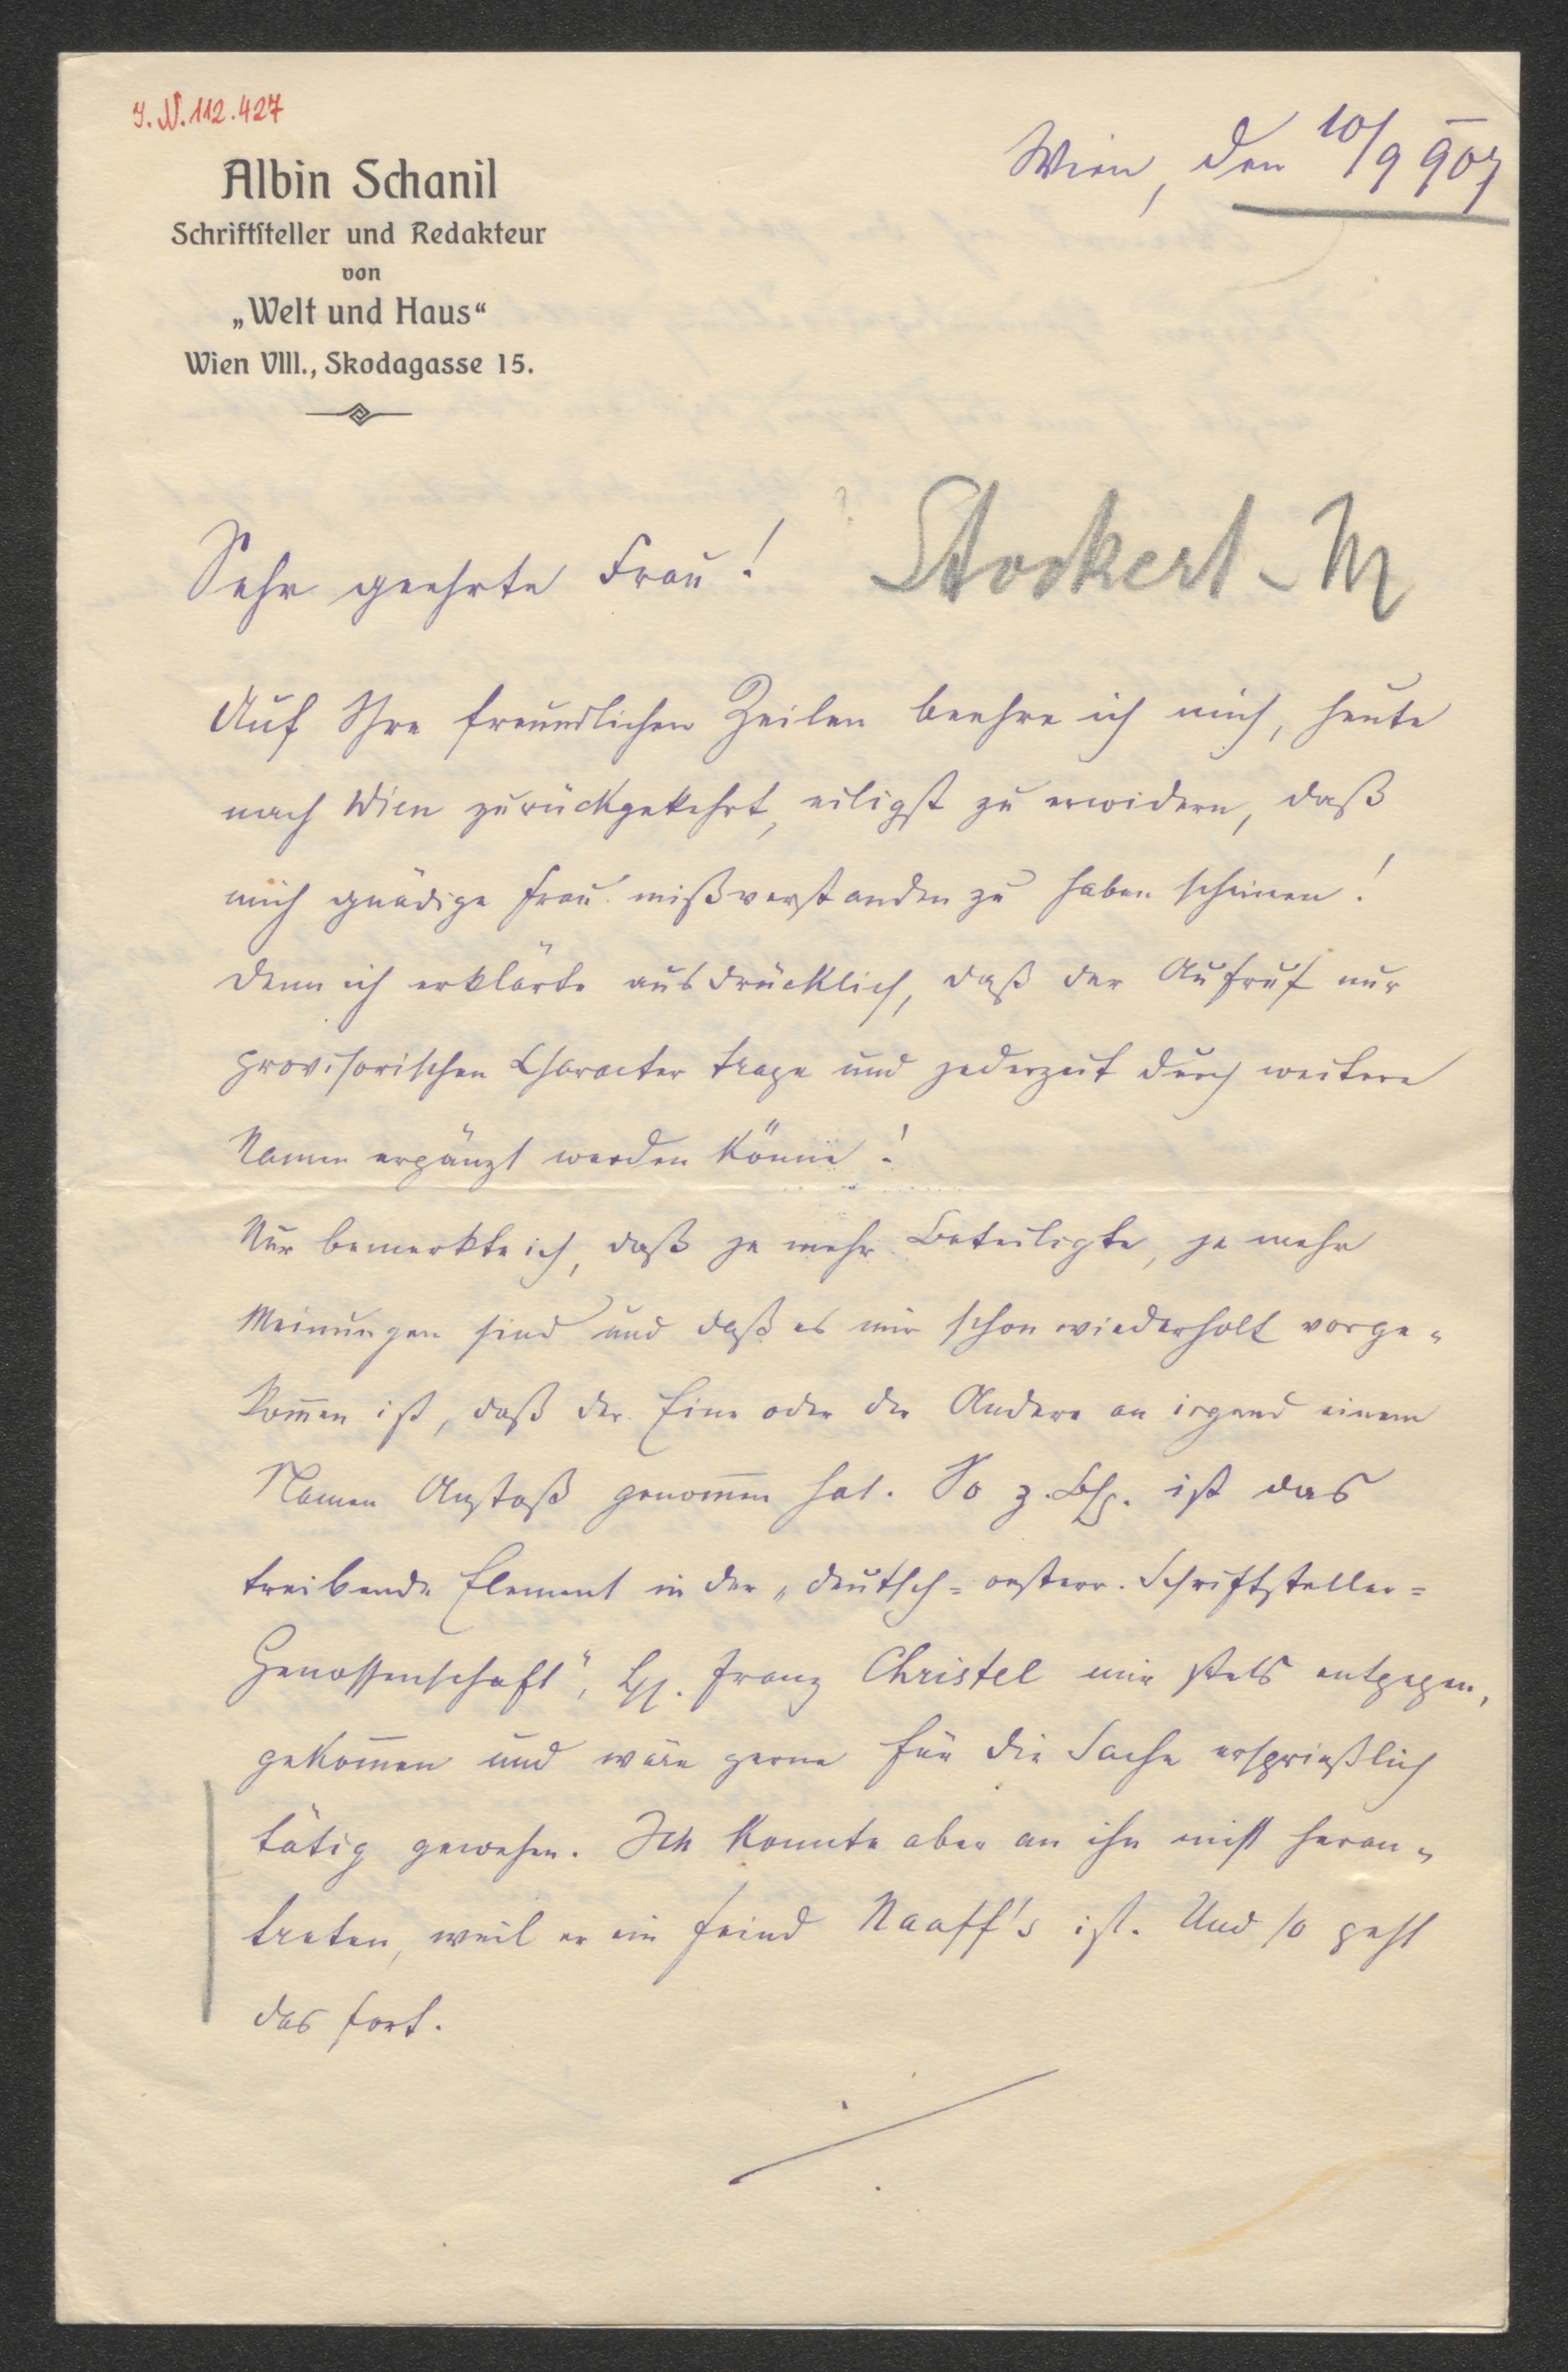 I. N. 112.427
Albin Schanil
Schriftsteller und Redakteur
von
„Welt und Haus“
Wien VIII., Skodagasse 15.
Wien, den 10/9 907
Sehr geehrte Frau!
Stockert-M
Auf Ihre freundlichen Zeilen beehre ich mich, heute
nach Wien zurückgekehrt, eiligst zu erwidern, daß
mich gnädige Frau mißverstanden zu haben scheinen!
Denn ich erklärte ausdrücklich, daß der Aufruf nur
provisorischen Character trage und jederzeit durch weitere
Namen ergänzt werden könne!
Nur bemerkte ich, daß je mehr Beteiligte, je mehr
Meinungen sind und daß es mir schon wiederholt vorge-
kom̅en ist, daß der Eine oder der Andere an irgend einem
Namen Anstoß genom̅en hat. So z. Bsp. ist das
treibende Element in der „deutsch=oesterr. Schriftsteller=
Genossenschaft“, H. Franz Christel mir stets entgegen-
gekom̅en und wäre gerne für die Sache ersprießlich
tätig gewesen. Ich konnte aber an ihn nicht heran-
treten, weil er ein Feind Naaff's ist. Und so geht
das fort.
./.